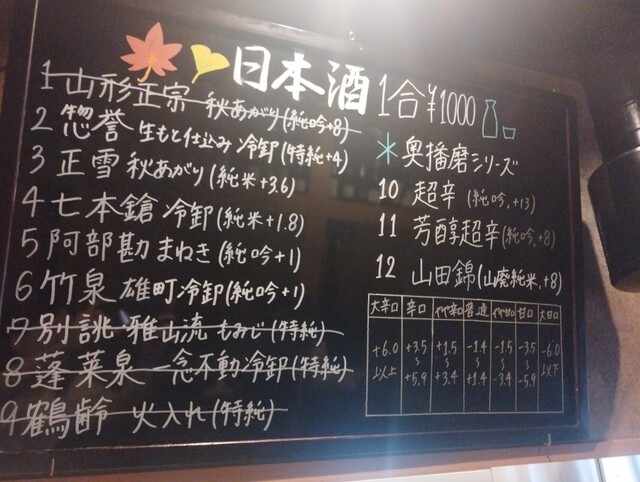 日本酒 1合¥1000
1 山形正宗 秋あがり(純吟+8)
2 惣誉 生もと仕込み 冷卸(特純+4)
3 正雪 秋あがり(純米+3.6)
4 七本鎗 冷卸(純米+1.8)
5 阿部勘 まねき(純吟+1)
6 竹泉 雄町冷卸(純吟+1)
7 別誂・雅山流 もみじ(特純)
8 蓬莱泉 一念不動冷卸(特純)
9 鶴齢 火入れ(特純)
*奥播磨シリーズ
10 超辛(純吟,+13)
11 芳醇超辛(純吟,+8)
12 山田錦(山廃純米,+8)
大辛口 辛口 やや辛口 普通 やや甘口 甘口 大甘口
+6.0 +3.5 +1.5 -1.4 -1.5 -3.5 -6.0
以上 ~ ~ ~ ~ ~ 以下
+5.9 +3.4 +1.4 -3.4 -5.9